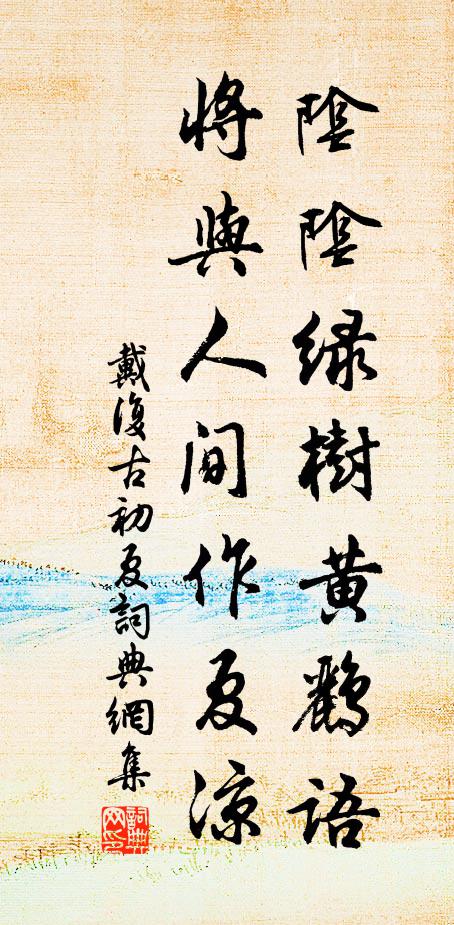 陰陰緑樹黄鸝語
將與人间作夏凉
戴復古初夏詞典網集
詞典网印